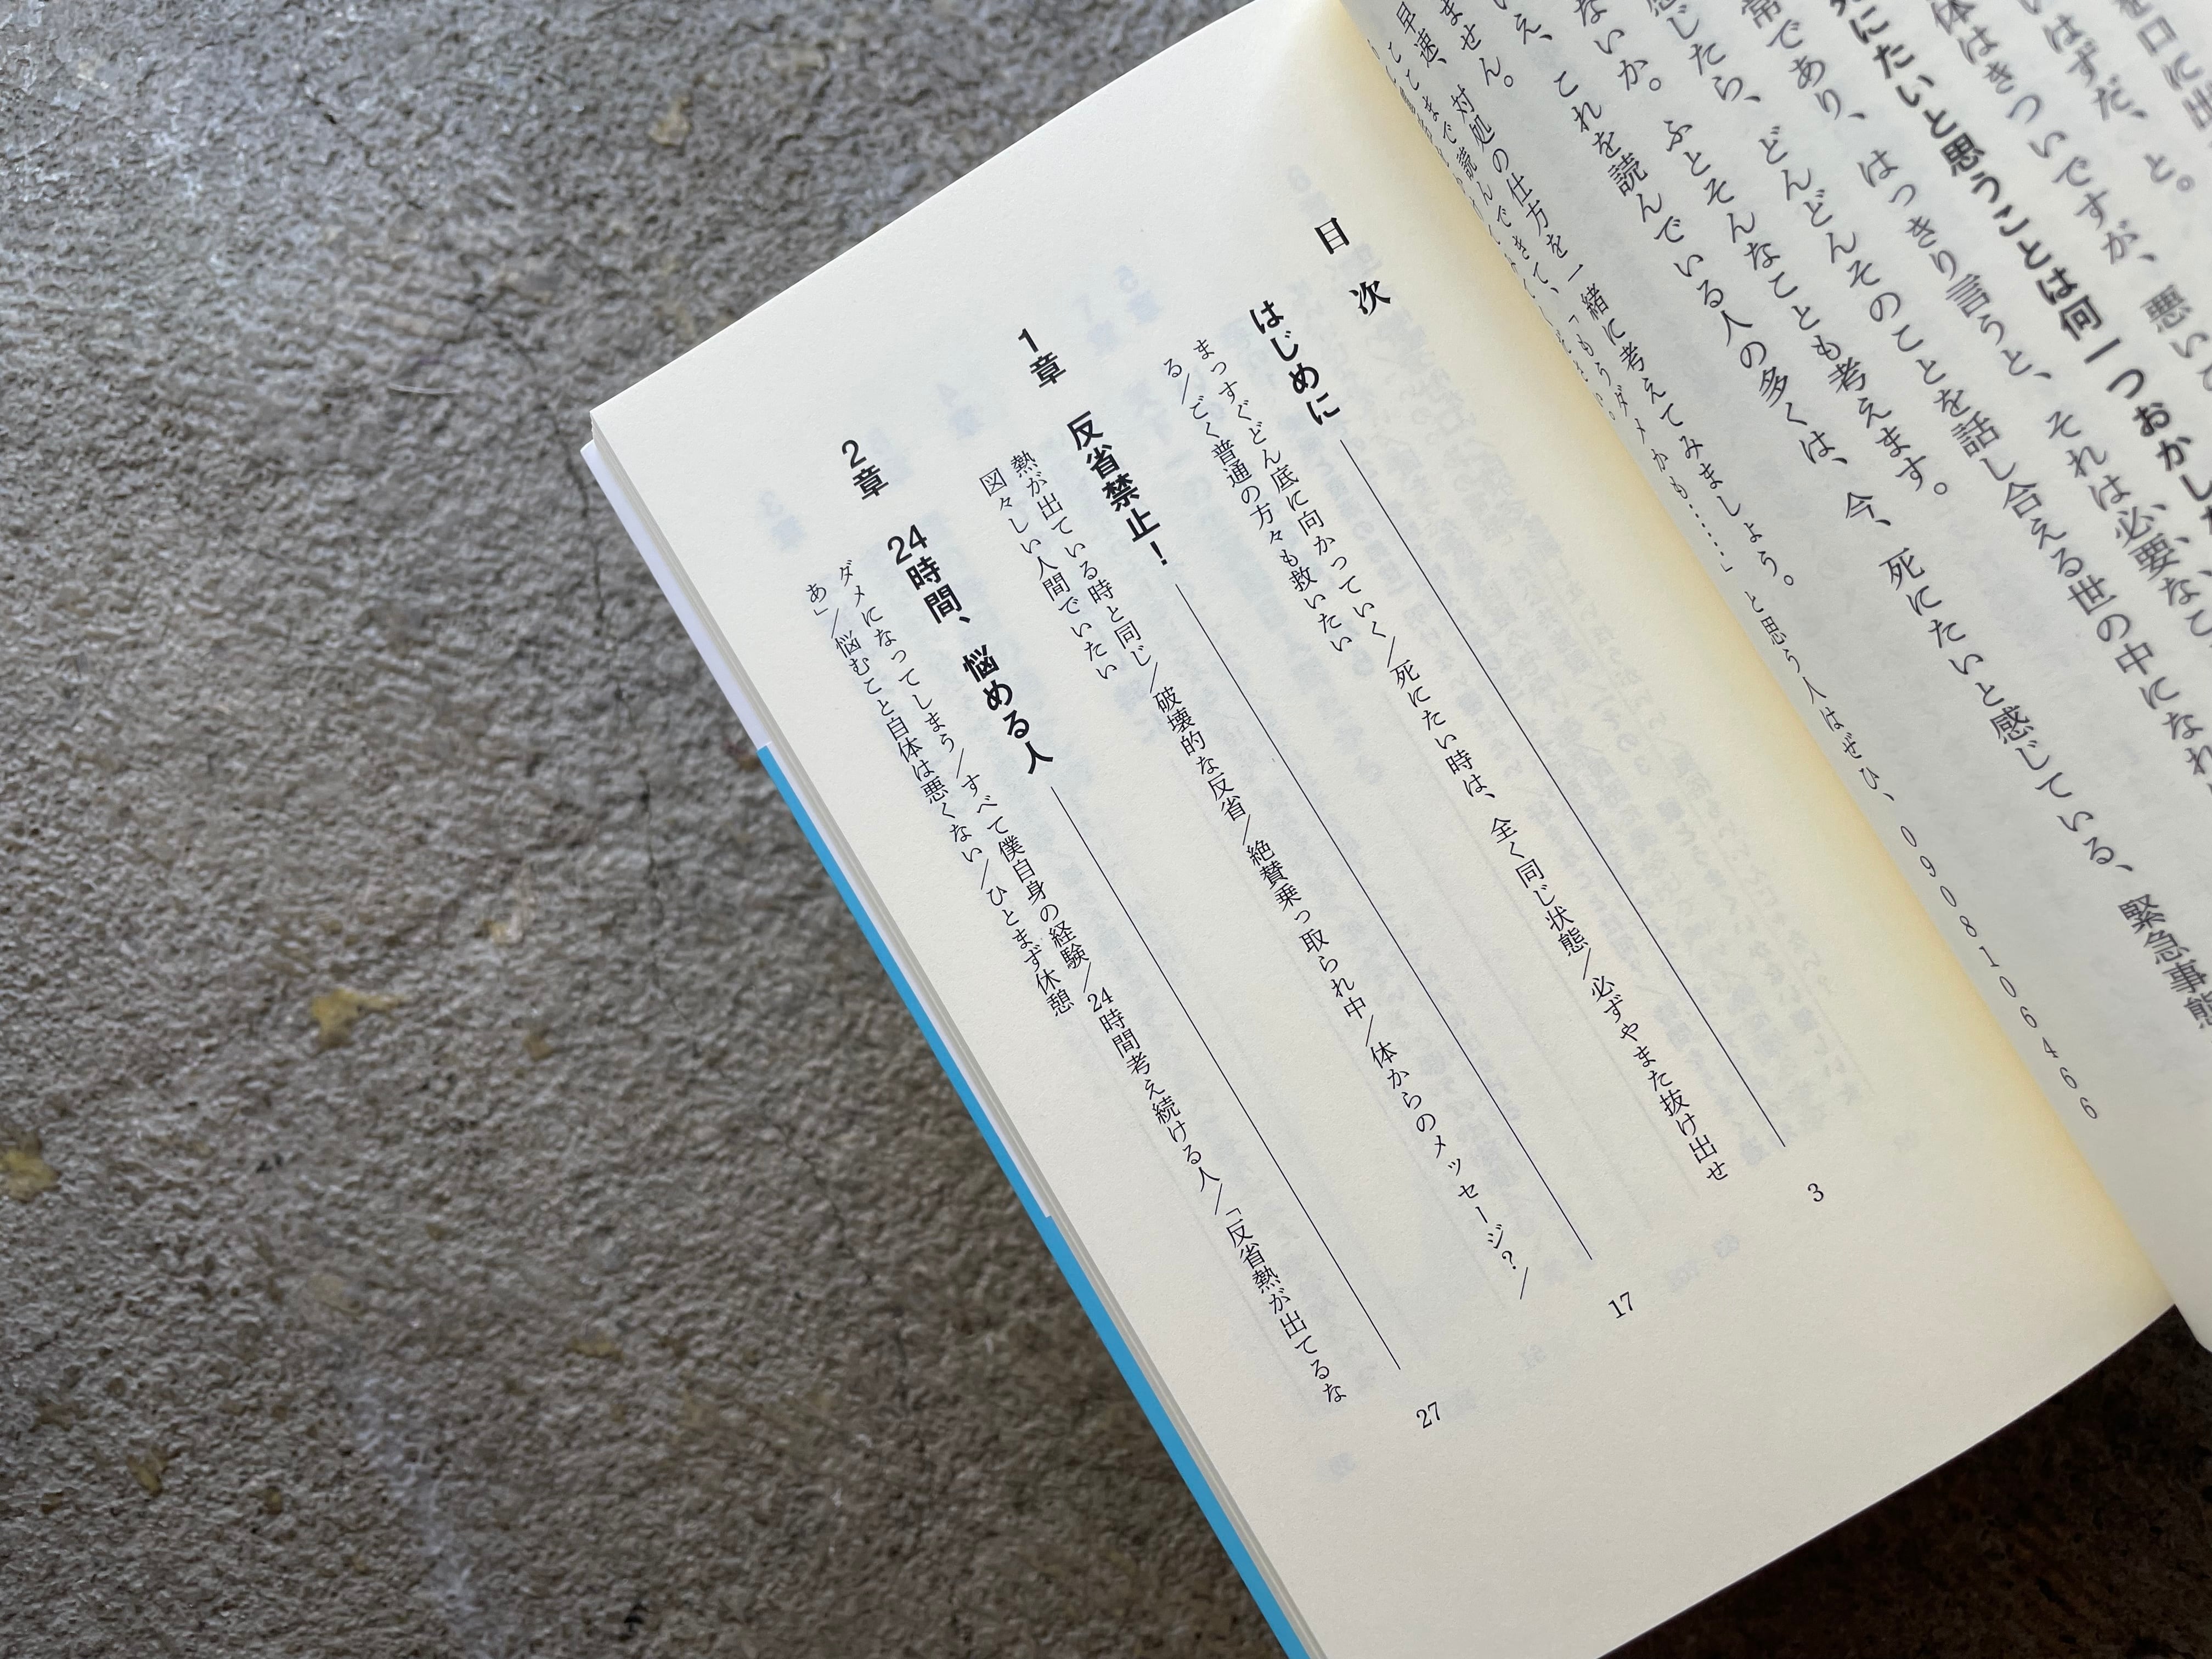 死にたいと思うことは何一つおかしな
常であり、はっきり言うと、それは必要なこ
感じたら、どんどんそのことを話し合える世の中になれ
ないか。ふとそんなことも考えます。
え、これを読んでいる人の多くは、今、死にたいと感じている、緊急事態
ません。
早速、対処の仕方を一緒に考えてみましょう。
ここまで読んできて、「もうダメかも……」と思う人はぜひ、09081064666
目次
はじめに 3
まっすぐどん底に向かっていく/死にたい時は、全く同じ状態/必ずやまた抜け出せ
る/ごく普通の方々も救いたい
1章 反省禁止! 17
熱が出ている時と同じ/破壊的な反省/絶賛乗っ取られ中/体からのメッセージ?/
図々しい人間でいたい
2章 24時間、悩める人 27
ダメになってしまう/すべて僕自身の経験/24時間考え続ける人/「反省熱が出てるな
あ」/悩むこと自体は悪くない/ひとまず休憩